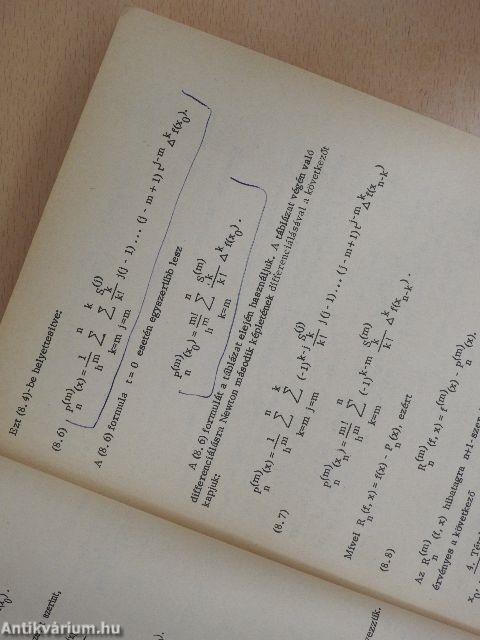 Ezt (8.4)-be helyettesitve:
(8.6) p_n^(m)(x) = 1/h^m ∑_{k=m}^{n} ∑_{j=m}^{k} S_k^(j)/k! j(j - 1) ... (j - m + 1) t^{j-m} Δ^k f(x_0).
A (8.6) formula t = 0 esetén egyszerübb lesz
p_n^(m)(x_0) = m!/h^m ∑_{k=m}^{n} S_k^(m)/k! Δ^k f(x_0).
A (8.6) formulát a táblázat elején használjuk. A táblázat végén való
differenciálásra Newton második képletének differenciálásával a következőt
kapjuk:
(8.7) p_n^(m)(x) = 1/h^m ∑_{k=m}^{n} ∑_{j=m}^{k} (-1)^{k-j} S_k^(j)/k! j(j - 1) ... (j - m + 1) t^{j-m} Δ^k f(x_{n-k})
p_n^(m)(x_n) = m!/h^m ∑_{k=m}^{n} (-1)^{k-m} S_k^(m)/k! Δ^k f(x_{n-k}).
Mivel R_n(f, x) = f(x) - p_n(x), ezért
(8.8) R_n^(m)(f, x) = f^(m)(x) - p_n^(m)(x).
Az R_n^(m)(f, x) hibatagra n+1-szer
érvényes a következő
4.
x_0
szerint,
Antikvárium.hu